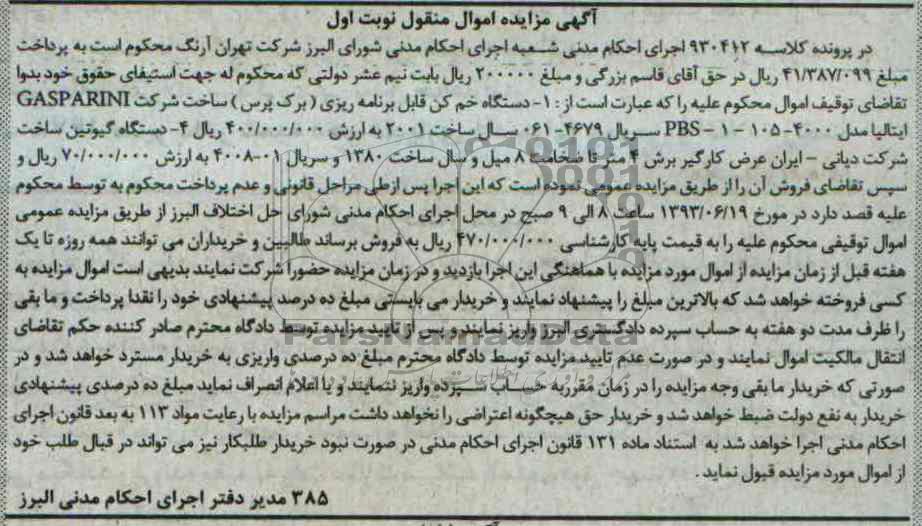 آگهی مزایده اموال منقول نوبت اول
در پرونده کلاسه ۹۳۰۴۱۲ اجرای احکام مدنی شعبه اجرای احکام مدنی شورای البرز شرکت تهران آرنگ محکوم است به پرداخت
مبلغ ۴۱/۳۸۷/۰۹۹ ریال در حق آقای قاسم بزرگی و مبلغ ۲۰۰۰۰۰۰ ریال بابت نیم عشر دولتی که محکوم له جهت استیفای حقوق خود بدوا
تقاضای توقیف اموال محکوم علیه را که عبارت است از : ۱- دستگاه خم کن قابل برنامه ریزی ( برک پرس ) ساخت شرکت GASPARINI
ایتالیا مدل ۴۰۰۰- ۱۰۵ - ۱ - PBS سریال ۴۶۷۹- ۰۶۱ سال ساخت ۲۰۰۱ به ارزش ۴۰۰/۰۰۰/۰۰۰ ریال ۴- دستگاه گیوتین ساخت
شرکت دیانی - ایران عرض کارگیر برش ۴ متر تا ضخامت ۸ میل و سال ساخت ۱۳۸۰ و سریال ۰۱-۴۰۰۸ به ارزش ۷۰/۰۰۰/۰۰۰ ریال و
سپس تقاضای فروش آن را از طریق مزایده عمومی نموده است که این اجرا پس از طی مراحل قانونی و عدم پرداخت محکوم به توسط محکوم
علیه قصد دارد در مورخ ۱۳۹۳/۰۶/۱۹ ساعت ۸ الی ۹ صبح در محل اجرای احکام مدنی شورای حل اختلاف البرز از طریق مزایده عمومی
اموال توقیفی محکوم علیه را به قیمت پایه کارشناسی ۴۷۰/۰۰۰/۰۰۰ ریال به فروش برساند طالبین و خریداران می توانند همه روزه تا یک
هفته قبل از زمان مزایده از اموال مورد مزایده با هماهنگی این اجرا بازدید و در زمان مزایده حضورا شرکت نمایند بدیهی است اموال مزایده به
کسی فروخته خواهد شد که بالاترین مبلغ را پیشنهاد نمایند و خریدار می بایستی مبلغ ده درصد پیشنهادی خود را نقدا پرداخت و ما بقی
را ظرف مدت دو هفته به حساب سپرده دادگستری البرز واریز نمایند و پس از تایید مزایده توسط دادگاه محترم صادر کننده حکم تقاضای
انتقال مالکیت اموال نمایند و در صورت عدم تایید مزایده توسط دادگاه محترم مبلغ ده درصدی واریزی به خریدار مسترد خواهد شد و در
صورتی که خریدار ما بقی وجه مزایده را در زمان مقرر به حساب سپرده واریز ننمایند و یا اعلام انصراف نماید مبلغ ده درصدی پیشنهادی
خریدار به نفع دولت ضبط خواهد شد و خریدار حق هیچگونه اعتراضی را نخواهد داشت مراسم مزایده با رعایت مواد ۱۱۳ به بعد قانون اجرای
احکام مدنی اجرا خواهد شد به استناد ماده ۱۳۱ قانون اجرای احکام مدنی در صورت نبود خریدار طلبکار نیز می تواند در قبال طلب خود
از اموال مورد مزایده قبول نماید .
۳۸۵ مدیر دفتر اجرای احکام مدنی البرز